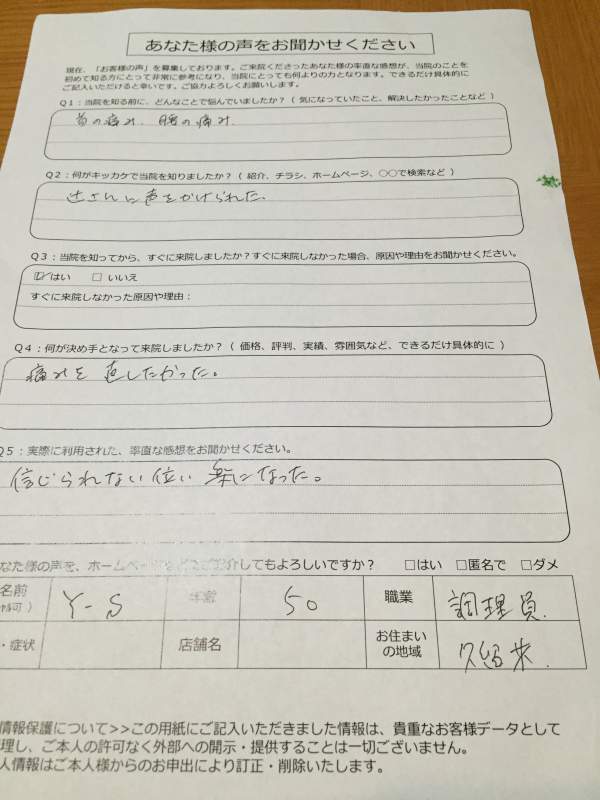 あなた様の声をお聞かせください
現在、「お客様の声」を募集しております。ご来院くださったあなた様の率直な感想が、当院のことを
初めて知る方にとって非常に参考になり、当院にとっても何よりの力となります。できるだけ具体的に
ご記入いただけると幸いです。ご協力よろしくお願いします。
Q1:当院を知る前に、どんなことで悩んでいましたか?( 気になっていたこと、解決したかったことなど )
首の痛み、腰の痛み、
Q2:何がキッカケで当院を知りましたか?( 紹介、チラシ、ホームページ、○○で検索など )
辻さんに声をかけられた、
Q3:当院を知ってから、すぐに来院しましたか?すぐに来院しなかった場合、原因や理由をお聞かせください。
☑はい □ いいえ
すぐに来院しなかった原因や理由:
Q4:何が決め手となって来院しましたか?( 価格、評判、実績、雰囲気など、できるだけ具体的に )
痛みを直したかった。
Q5:実際に利用された、率直な感想をお聞かせください。
信じられない位い楽になった。
なた様の声を、ホームページなどでご紹介してもよろしいですか? □はい □匿名で □ダメ
名前 Y-S 年齢 50 職業 調理員.
・症状 店舗名 お住まいの地域 久留米.
情報保護について>>この用紙にご記入いただきました情報は、貴重なお客様データとして
理し、ご本人の許可なく外部への開示・提供することは一切ございません。
人情報はご本人様からのお申出により訂正・削除いたします。